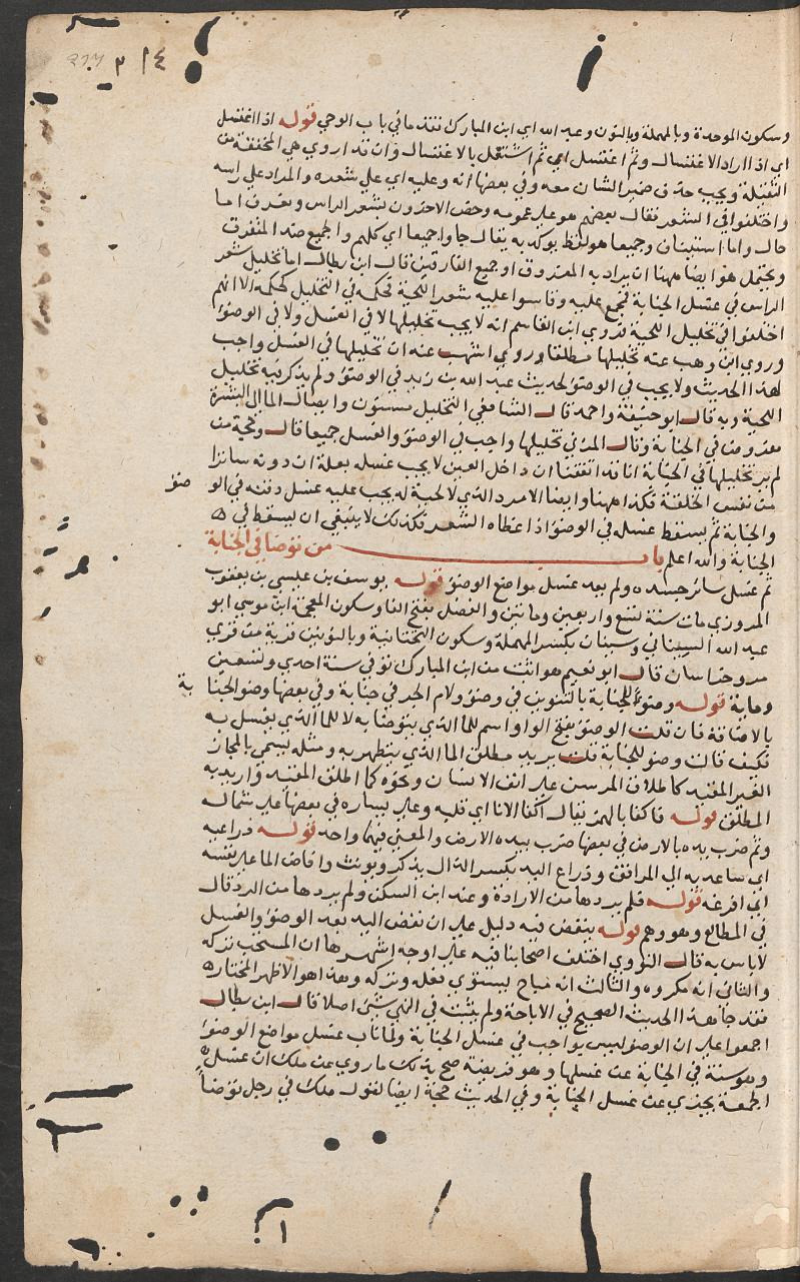 ٢١٤
وسكون الموحدة وبالمهملة وبالنون وعبد الله اي ابن المبارك تقدما في باب الوحي قوله اذا اغتسل
اي اذا اراد الاغتسال وثم اغتسل اي ثم اشتغل بالاغتسال وان قد اروي هي المخففة من
الثقيلة ويجب حذف ضمير الشان معه وفي بعضها انه وعليه اي علي شعره والمراد علي راسه
واختلفوا في الشعر فقال بعضهم هو علي عمومه وخص الاخرون بشعر الراس ونغرف اما
حال واما استيناف وجميعا هو لفظ يوكد به يقال جاوا جميعا اي كلهم والجميع ضد المتفرق
ويحتمل هو ايضا مهنا ان يراد به المعروف او جميع الغارفين قال ابن بطال اما تخليل شعر
الراس في غسل الجنابة فمجمع عليه وقاسوا عليه شعر اللحية فحكمه في التخليل كحكمه الا انهم
اختلفوا في تخليل اللحية فروي ابن القاسم انه لا يجب تخليلها لا في الغسل ولا في الوضوء
وروي ابن وهب عنه تخليلها مطلقا وروي اشهب عنه ان تخليلها في الغسل واجب
لهذا الحديث ولا يجب في الوضوء لحديث عبد الله بن زيد في الوضوء ولم يذكر فيه تخليل
اللحية وبه قال ابو حنيفة واحمد قال الشافعي التخليل مسنون وايصال الماء الي البشرة
مفروض في الجنابة وقال المزني تخليلها واجب في الوضوء والغسل جميعا قال وحجة من
لم ير تخليلها في الجنابة انا قد اتفقنا ان داخل العين لا يجب غسله بعلة ان دونه ساترا
من نفس الخلقة فكذا مهنا وايضا الامرد الذي لا لحية له يجب عليه غسل ذقنه في الوضو
والجنابة ثم يسقط غسله في الوضوء اذا غطاه الشعر فكذلك لا ينبغي ان يسقط في
الجنابة والله اعلم باب من توضا في الجنابة
ثم غسل سائر جسده ولم يعد غسل مواضع الوضوء قوله يوسف بن عيسي بن يعقوب
المروزي مات سنة تسع واربعين وماتين والفضل بفتح الفا وسكون المعجمة ابن موسي ابو
عبد الله السيناني وسينان بكسر المهملة وسكون التحتانية وبالنونين قرية من قري
مرو خراسان قال ابو نعيم هو اثبت من ابن المبارك توفي سنة احدي وتسعين
وماية قوله وضوءا للجنابة بالتنوين في وضوء ولام الجر في جنابة وفي بعضها وضو الجنابة
بالاضافة فان قلت الوضوء بفتح الواو اسم للماء الذي يتوضا به لا للماء الذي يغسل به
فكيف قال وضو للجنابة قلت يريد مطلق الماء الذي يتطهر به ومثله يسمي بالمجاز
الغير المقيد كاطلاق المرسن علي انف الانسان ونحوه كما اطلق المقيد واريد به
المطلق قوله فاكفا بالهمز يقال اكفا الانا اي قلبه وعلي يساره في بعضها علي شماله
وثم ضرب يده بالارض في بعضها ضرب بيده الارض والمعني فيهما واحد قوله ذراعيه
اي ساعديه الي المرافق وذراع اليد بكسر الذال يذكر ويونث وافاض الماء علي نفسه
اي افرغه قوله فلم يردها من الارادة وعند ابن السكن ولم يردها من الرد قال
في المطالع وهو وهم قوله ينفض فيه دليل علي ان نفض اليد بعد الوضوء والغسل
لا باس به قال النووي اختلف اصحابنا فيه علي اوجه اشهرها ان المستحب تركه
والثاني انه مكروه والثالث انه مباح يستوي فعله وتركه وهذا هو الاظهر المختار
فقد جا هذا الحديث الصحيح في الاباحة ولم يثبت في النهي شي اصلا قال ابن بطال
اجمعوا علي ان الوضوء ليس بواجب في غسل الجنابة ولما ناب غسل مواضع الوضوء
وهو سنة في الجنابة عن غسلها وهو فريضة صح بذلك ما روي عن ملك ان غسل
الجمعة يجزي عن غسل الجنابة وفي الحديث حجة ايضا لقول ملك في رجل توضا